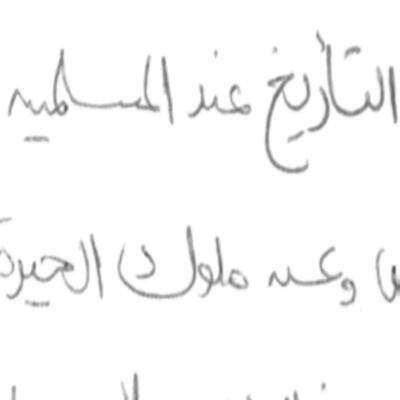 التأريخ عند المسلمين
وعن ملوك الحيرة